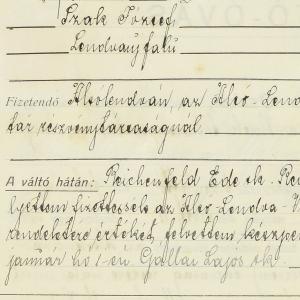 Szak József
Lendvaujfalu
Fizetendő Alsólendván, az Alsó-Lend
tár részvénytársaságnál
A váltó hátán: Reichenfeld Ede sk.
fizettessék az Alsó-Lendva
rendeletére értékét felvettem készpén
január hó 1-én Gállai Lajos sk